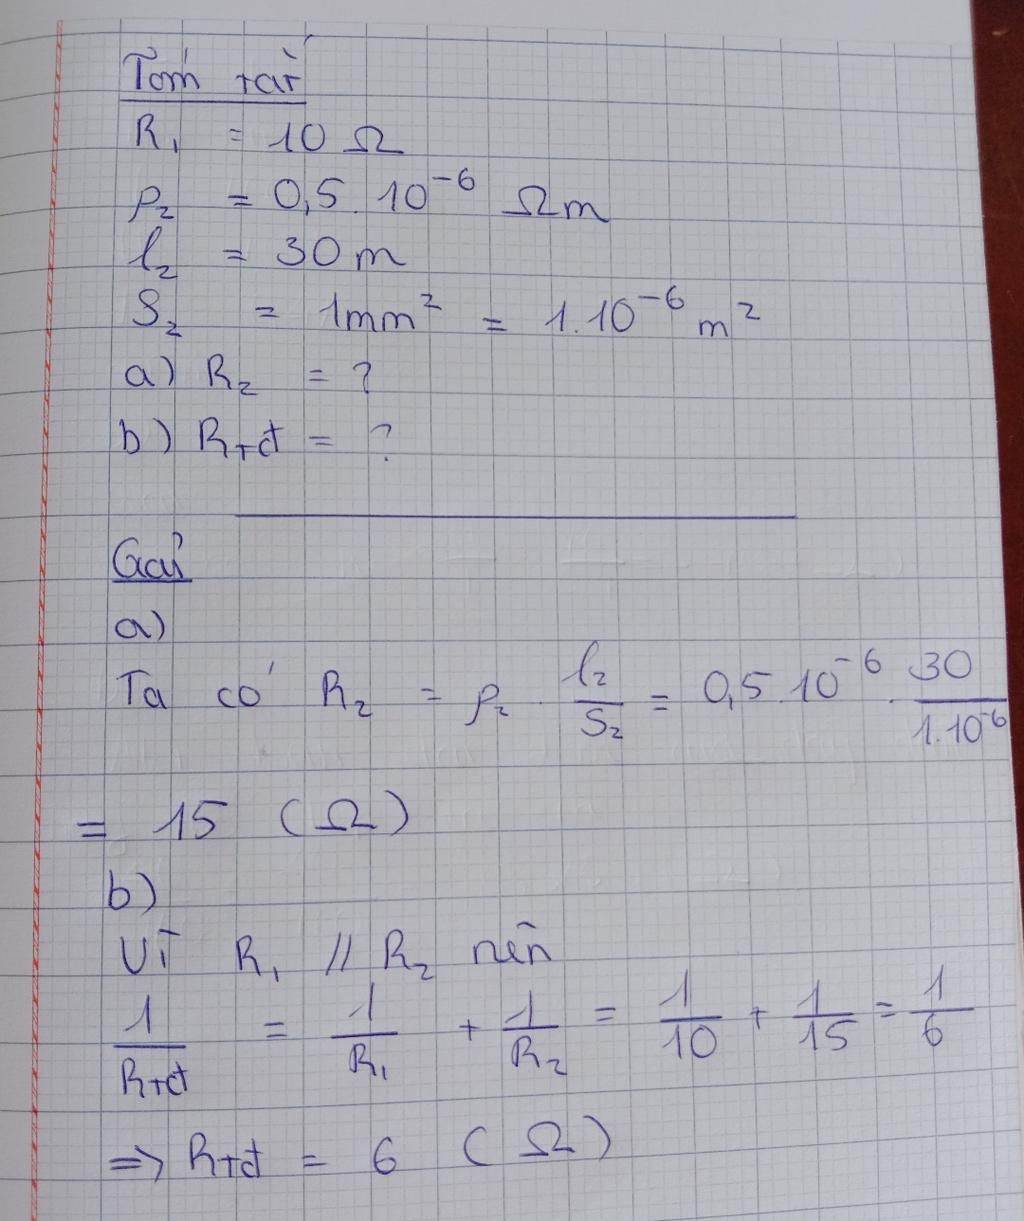 Tóm tắt
R₁ = 10 Ω
ρ₂ = 0,5 . 10⁻⁶ Ωm
l₂ = 30 m
S₂ = 1mm² = 1.10⁻⁶ m²
a) R₂ = ?
b) Rtđ = ?
Giải
a)
Ta có R₂ = ρ₂ . l₂/S₂ = 0,5 . 10⁻⁶ . 30/1.10⁻⁶
= 15 (Ω)
b)
Vì R₁ // R₂ nên
1/Rtđ = 1/R₁ + 1/R₂ = 1/10 + 1/15 = 1/6
=> Rtđ = 6 (Ω)